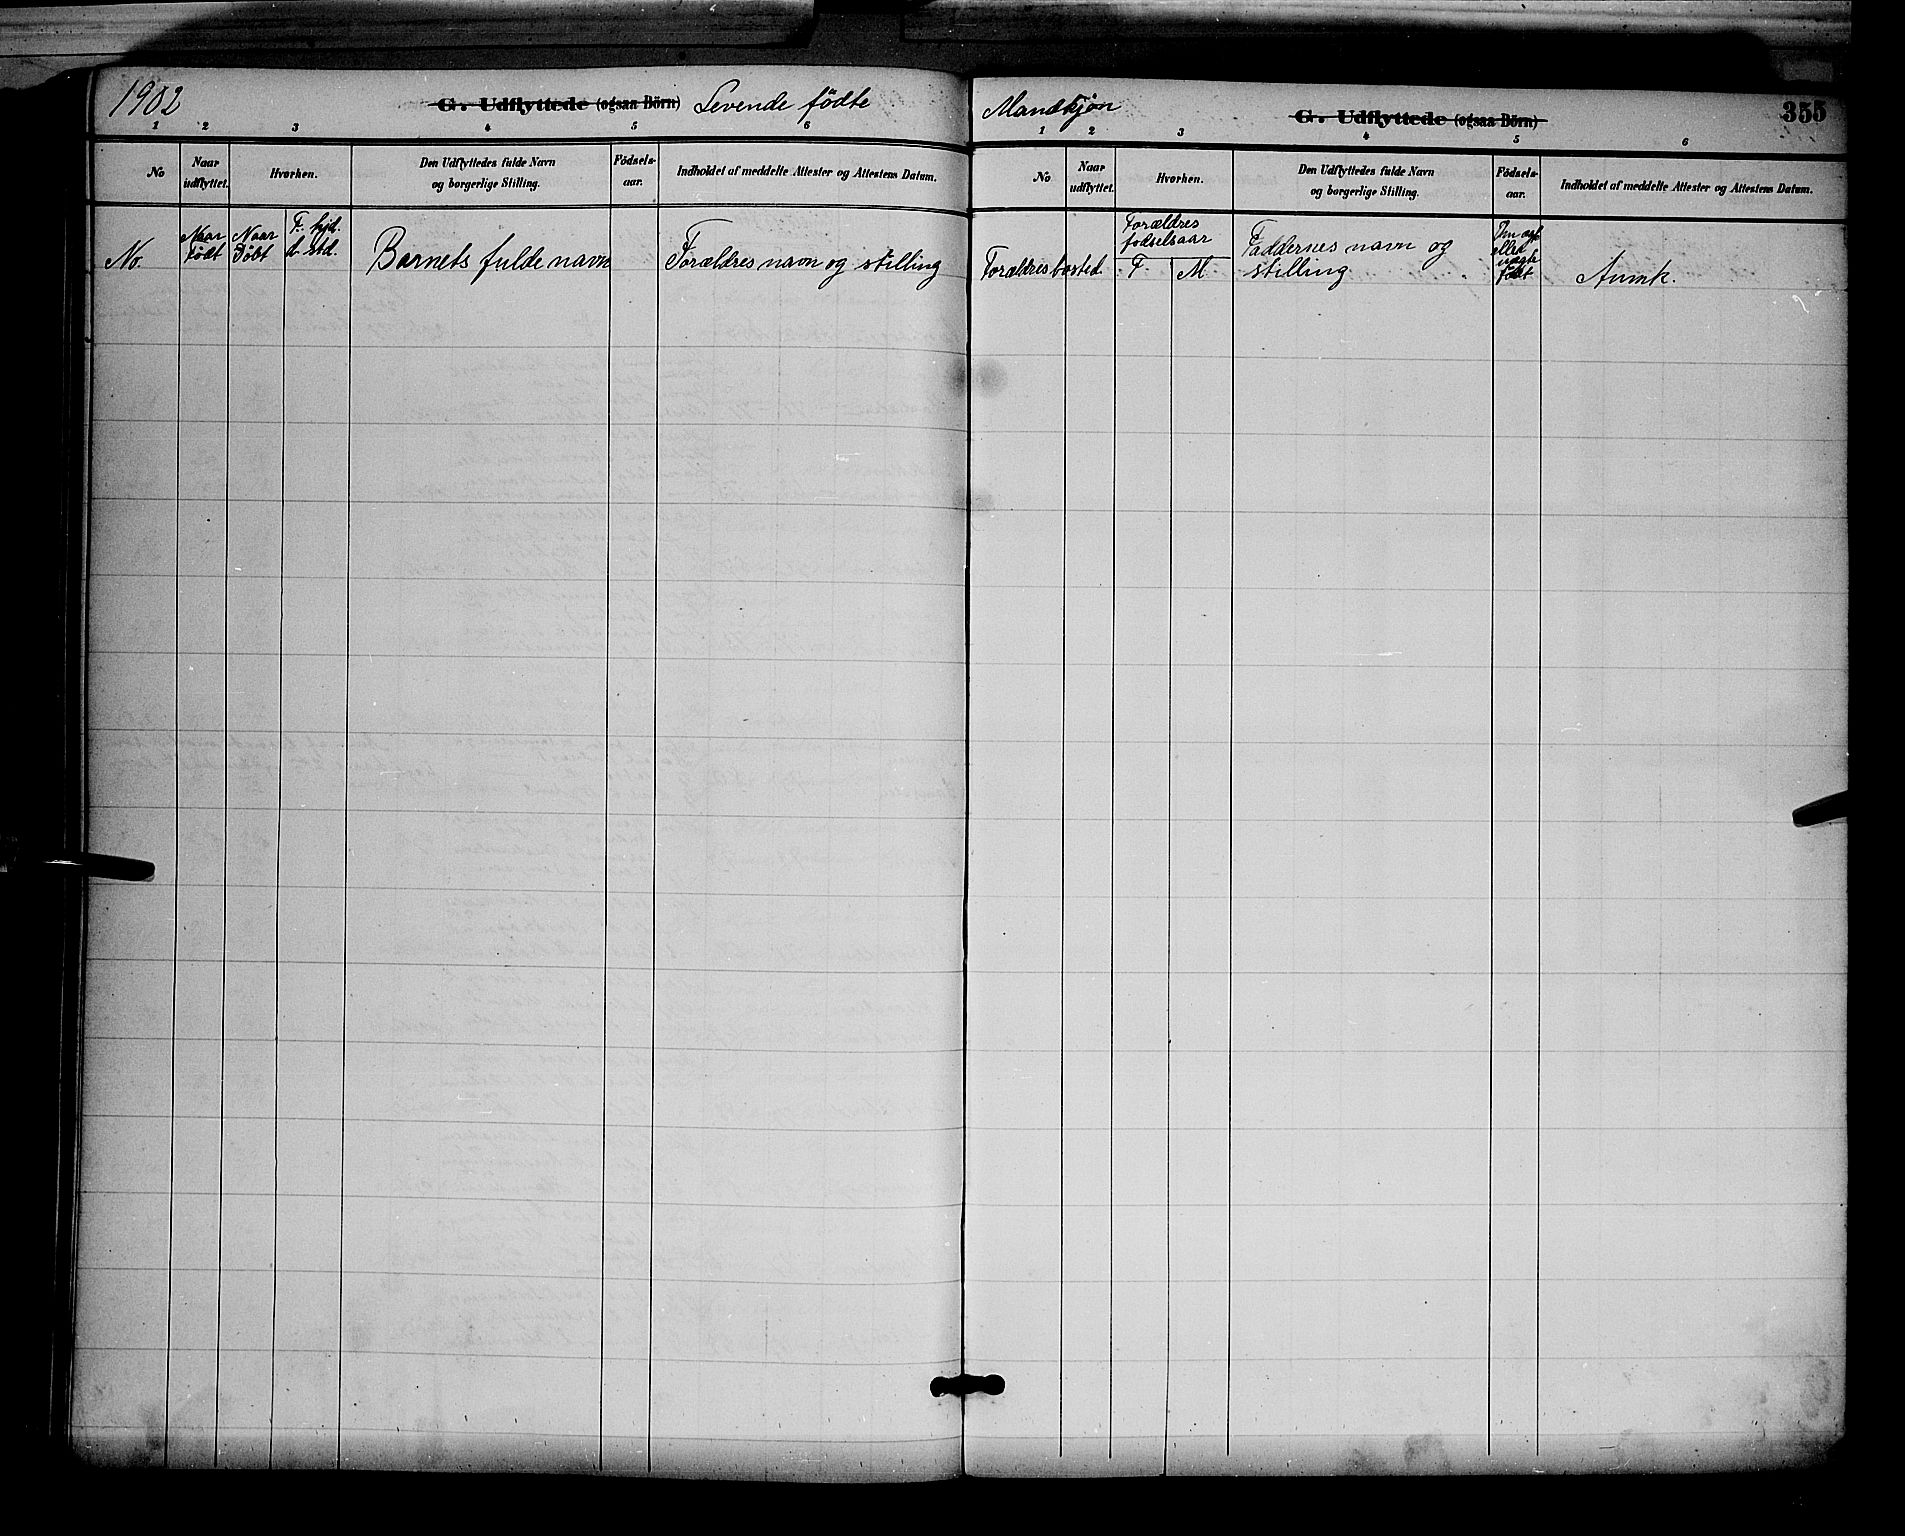 1902 G. Udflyttede (ogsaa Börn) Levende fødte
1 2 3 4 5 6
No
Naar
udflyttet.
Hvorhen.
Den Udflyttedes fulde Navn
og borgerlige Stilling.
Födsels-
aar.
Indholdet af meddelte Attester og Attestens Datum.
No.
Naar
født
Naar
Døbt
F. hjd.
d. std.
Barnets fulde navn
Forældres navn og stilling
Mandkjøn G. Udflyttede (ogsaa Börn) 355
1 2 3 4 5 6
No
Naar
udflyttet.
Hvorhen.
Den Udflyttedes fulde Navn
og borgerlige Stilling.
Födsels-
aar.
Indholdet af meddelte Attester og Attestens Datum.
Forældres bosted.
Forældres
fødselsaar
F M
Faddernes navn og
stilling
eller
uægte
født
Anmk.